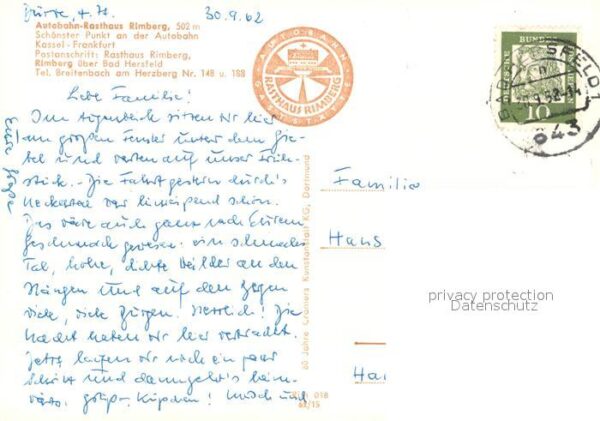 30.9.62
Autobahn-Rasthaus Rimberg, 502 m
Schönster Punkt an der Autobahn
Kassel-Frankfurt
Postanschrift: Rasthaus Rimberg,
Rimberg über Bad Hersfeld
Tel. Breitenbach am Herzberg Nr. 148 u. 188
AUTOBAHN
RASTHAUS RIMBERG
GASTSTÄTTE
DEUTSCHE BUNDESPOST
10
BAD HERSFELD 1
643
Liebe Familie!
Im Augenblick sitzen wir hier
am großen Fenster unter dem Gie-
bel und warten auf unser Früh-
stück. - Die Fahrt gestern durch's
Neckartal war hinreißend schön.
Das wäre auch ganz nach Eurem
Geschmack gewesen: ein schmales
Tal, hohe, dichte Wälder an den
Hängen und auf den Bergen
viele, viele Burgen. Herrlich! Die
Nacht haben wir hier verbracht.
Jetzt laufen wir noch ein paar
Schritt und dann geht's heim-
wärts. und
Eure
60 Jahre Cramers Kunstanstalt KG, Dortmund
Familie
Hans
Han
privacy protection
Datenschutz
018
62/15